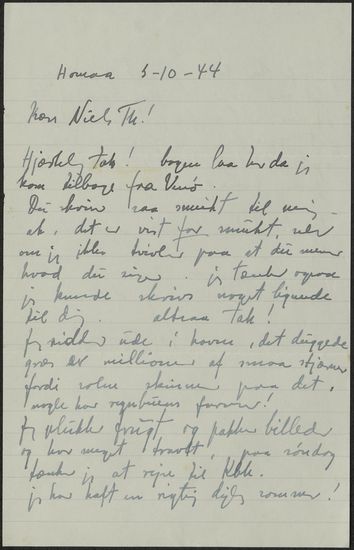 Homaa 5-10-44
Kære Niels Th!
Hjærtelig tak! bogen laa her da jeg
kom tilbage fra Venø.
Du skriver saa smukt til mig -
ak, det er vist for smukt, selv
om jeg ikke tvivler paa at du mener
hvad du siger. jeg tænker ogsaa
jeg kunde skrive noget lignende
til dig. altsaa tak!
Jeg sidder ude i haven, det duggede
græs er millioner af smaa stjærner
fordi solen skinner paa det,
nogle har regnbuens farver!
Jeg plukker frugt og pakker billeder
og har meget travlt, paa søndag
tænker jeg at rejse til Kbh.
jeg har haft en rigtig dejlig sommer!